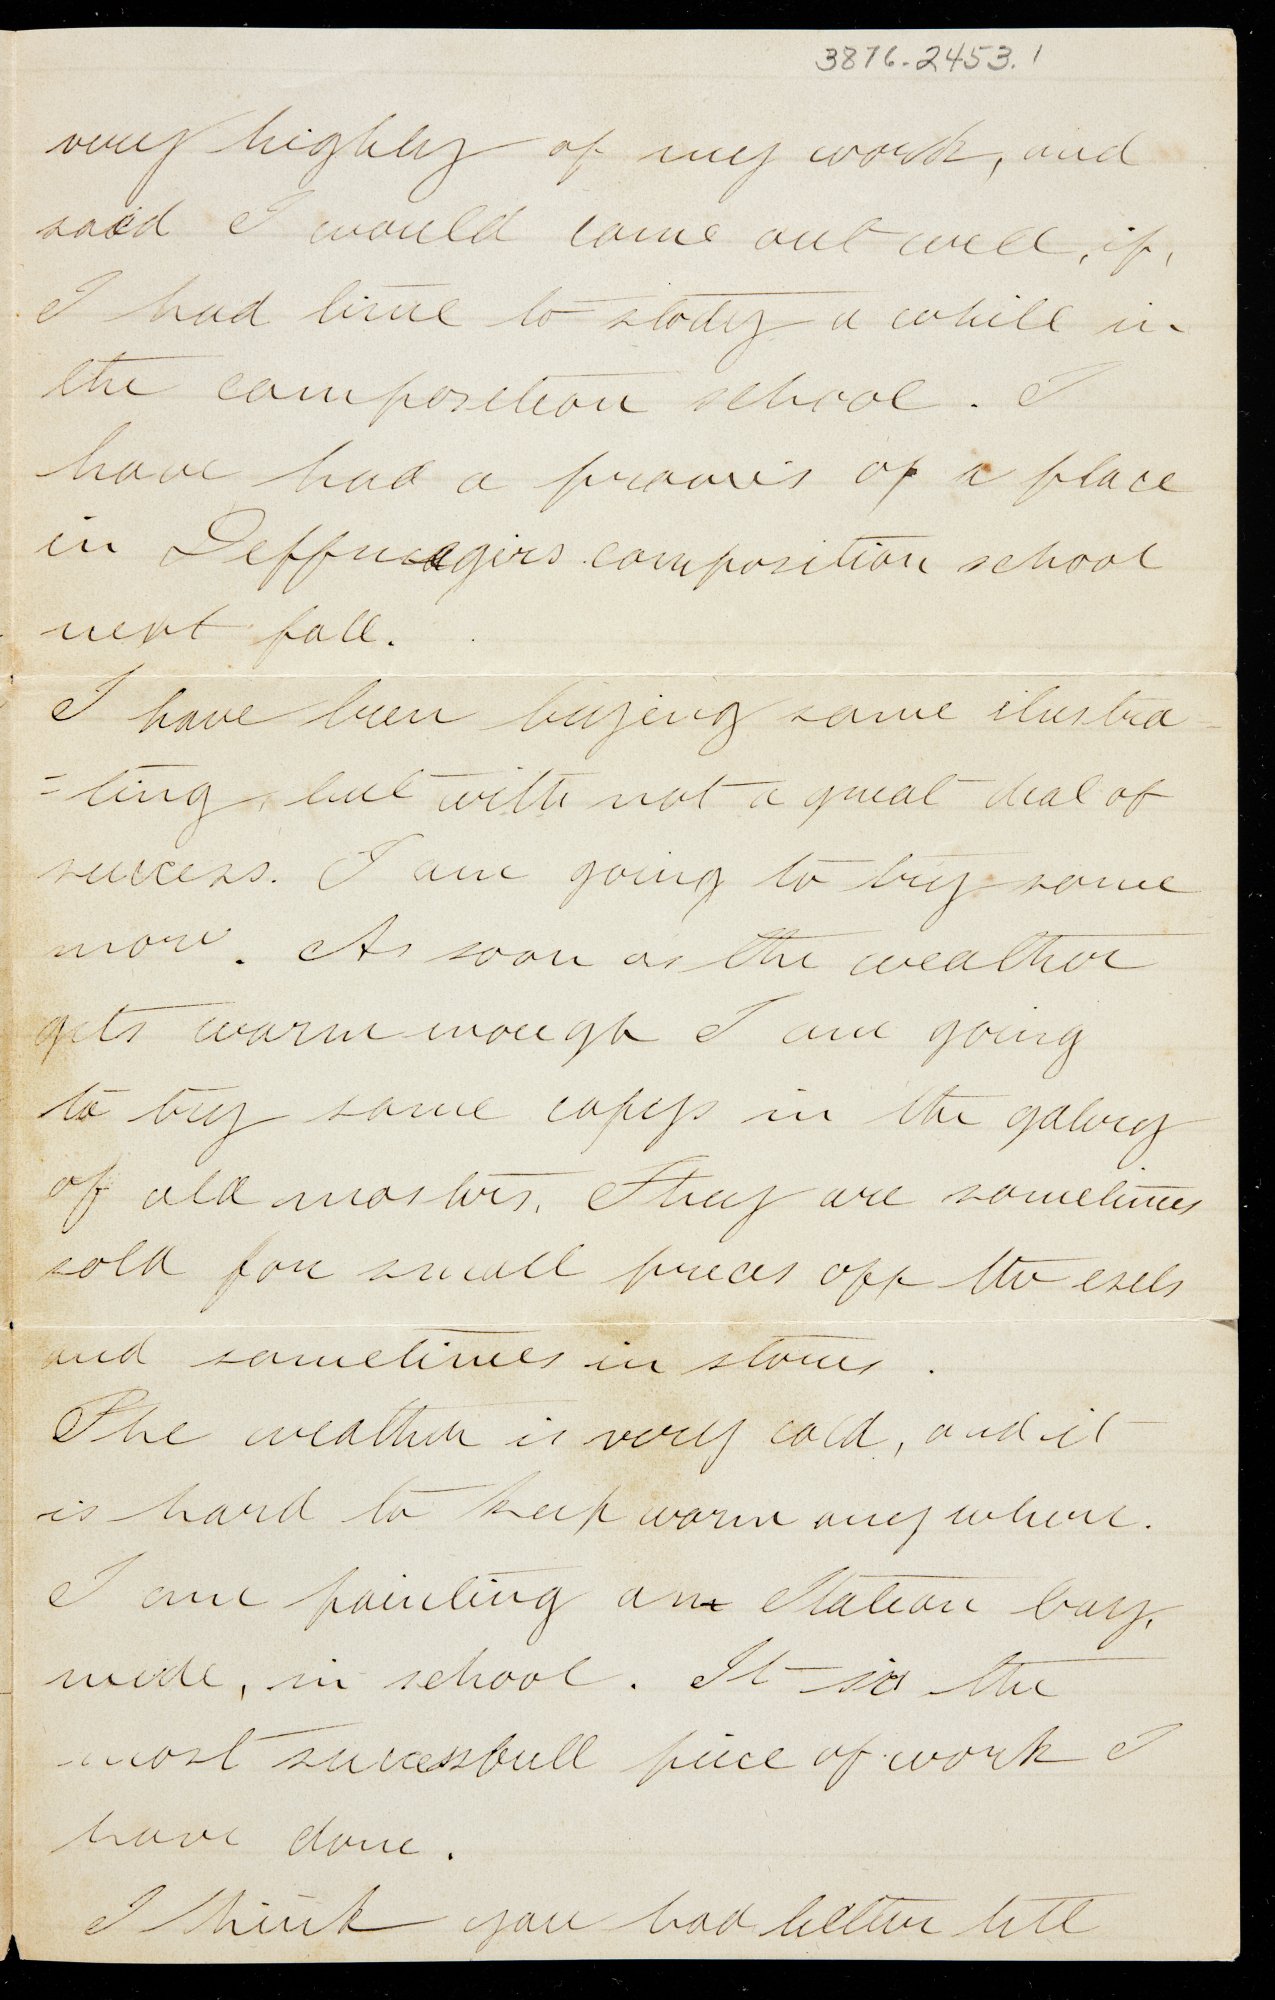 3876.2453.1
very highly of my work, and
said I would come out well, if,
I had time to study a while in
the composition school. I
have had a promis of a place
in Deffregirs composition school
next fall.
I have been trying some ilustra-
=ting, but with not a great deal of
success. I am going to try some
more. As soon as the weather
gets warm enough I am going
to try some copys in the galery
of old masters. They are sometimes
sold for small prices off the esels
and sometimes in stores.
The weather is very cold, and it
is hard to keep warm any where.
I am painting an Italian boy,
nude, in school. It is the
most sucessfull piece of work I
have done.
I think you had better tell